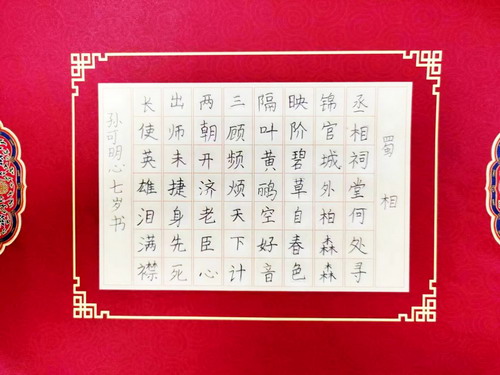 蜀相
丞相祠堂何处寻
锦官城外柏森森
映阶碧草自春色
隔叶黄鹂空好音
三顾频烦天下计
两朝开济老臣心
出师未捷身先死
长使英雄泪满襟
孙可明心七岁书